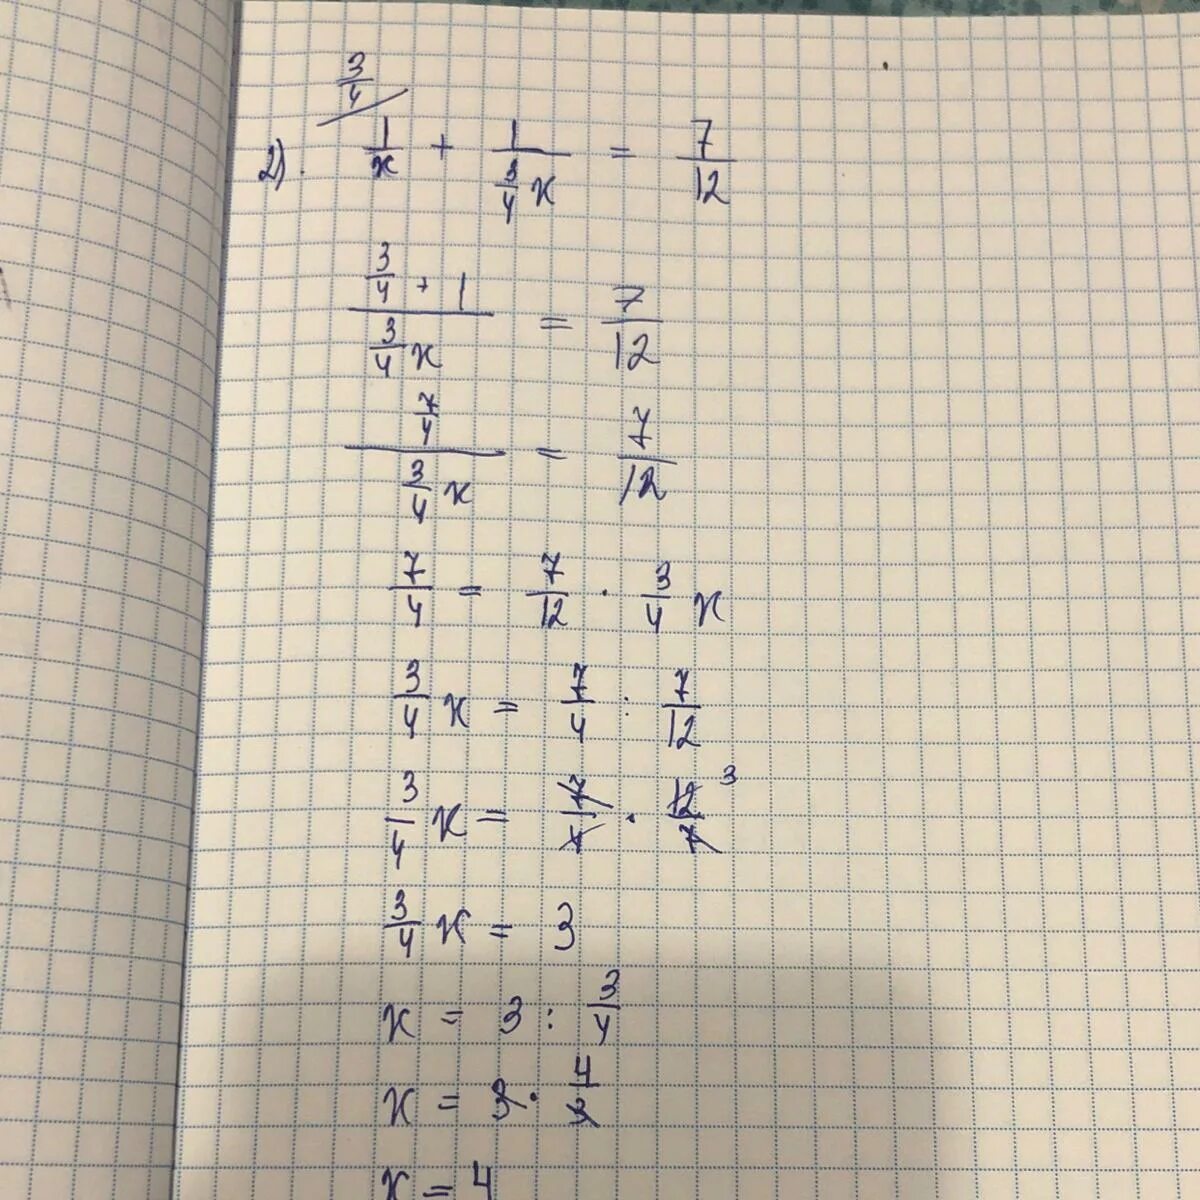 3/4
2). 1/x + 1/(3/4 x) = 7/12
(3/4 + 1)/(3/4 x) = 7/12
(7/4)/(3/4 x) = 7/12
7/4 = 7/12 · 3/4 x
3/4 x = 7/4 : 7/12
3/4 x = 7/4 · 12/7 3
3/4 x = 3
x = 3 : 3/4
x = 3 · 4/3
x = 4